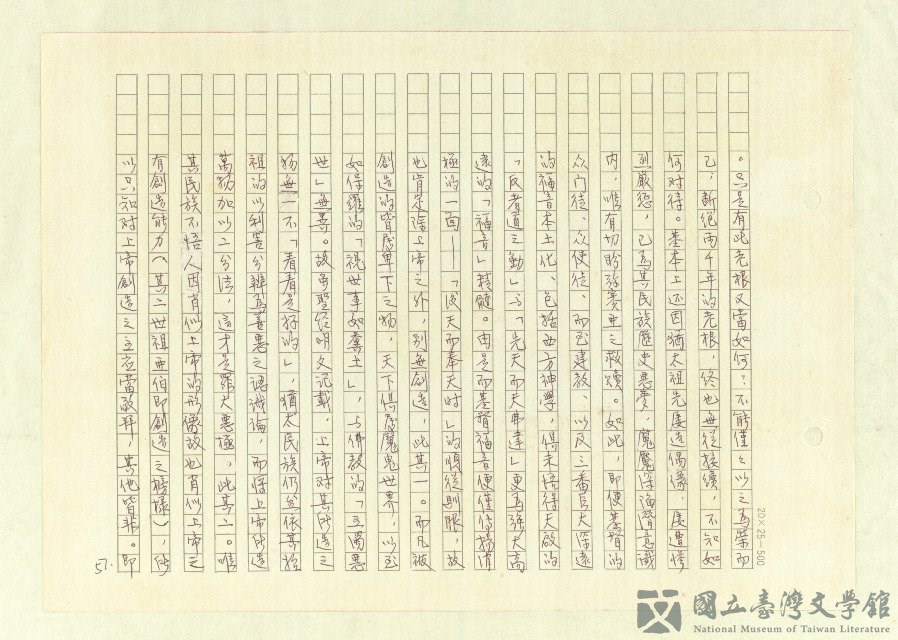 。只是有此老根又當如何?不能僅々以之為榮而
已,斷絕兩千年的老根,終也無從接續,不知如
何对待。基本上还因猶太祖先屡造偶像、屡遭慘
烈嚴懲,已為其民族歷史惡夢、魔魘深淪潛意識
内,唯有切盼弥賽亞之救赎。如此,即使基督的
众门徒、众使徒、而至建教、以及三番启大深遠
的福音本土化、包括西方神學,俱未悟得天啟的
「反者道之動」与「先天而天弗違」更為強大高
遠的「福音」精髓。由是而基督福音便僅係積消
極的一面——「後天而奉天时」的順從則限,故
也肯定除上帝之外,別無創造,此其一。而凡被
創造的皆屬卑下之物,天下俱屬魔鬼世界,以至
如保羅的「視世事如糞土」,与佛教的「三毒惡
世」無異。故虽聖经明文记載,上帝对其所造之
物無一不「看着是好的」,猶太民族仍竝依其始
祖的以利害分辨為善惡之認識論,而将上帝所造
萬物加以二分法,這才是罪大惡極,此其二。唯
其民族不悟人因有似上帝的形像故也有似上帝之
有創造能力(其二世祖亞伯即創造之榜樣),所
以只知对上帝創造之主应當敬拜,其他皆非。即
51.
20×25=500
國立臺灣文學館
National Museum of Taiwan Literature